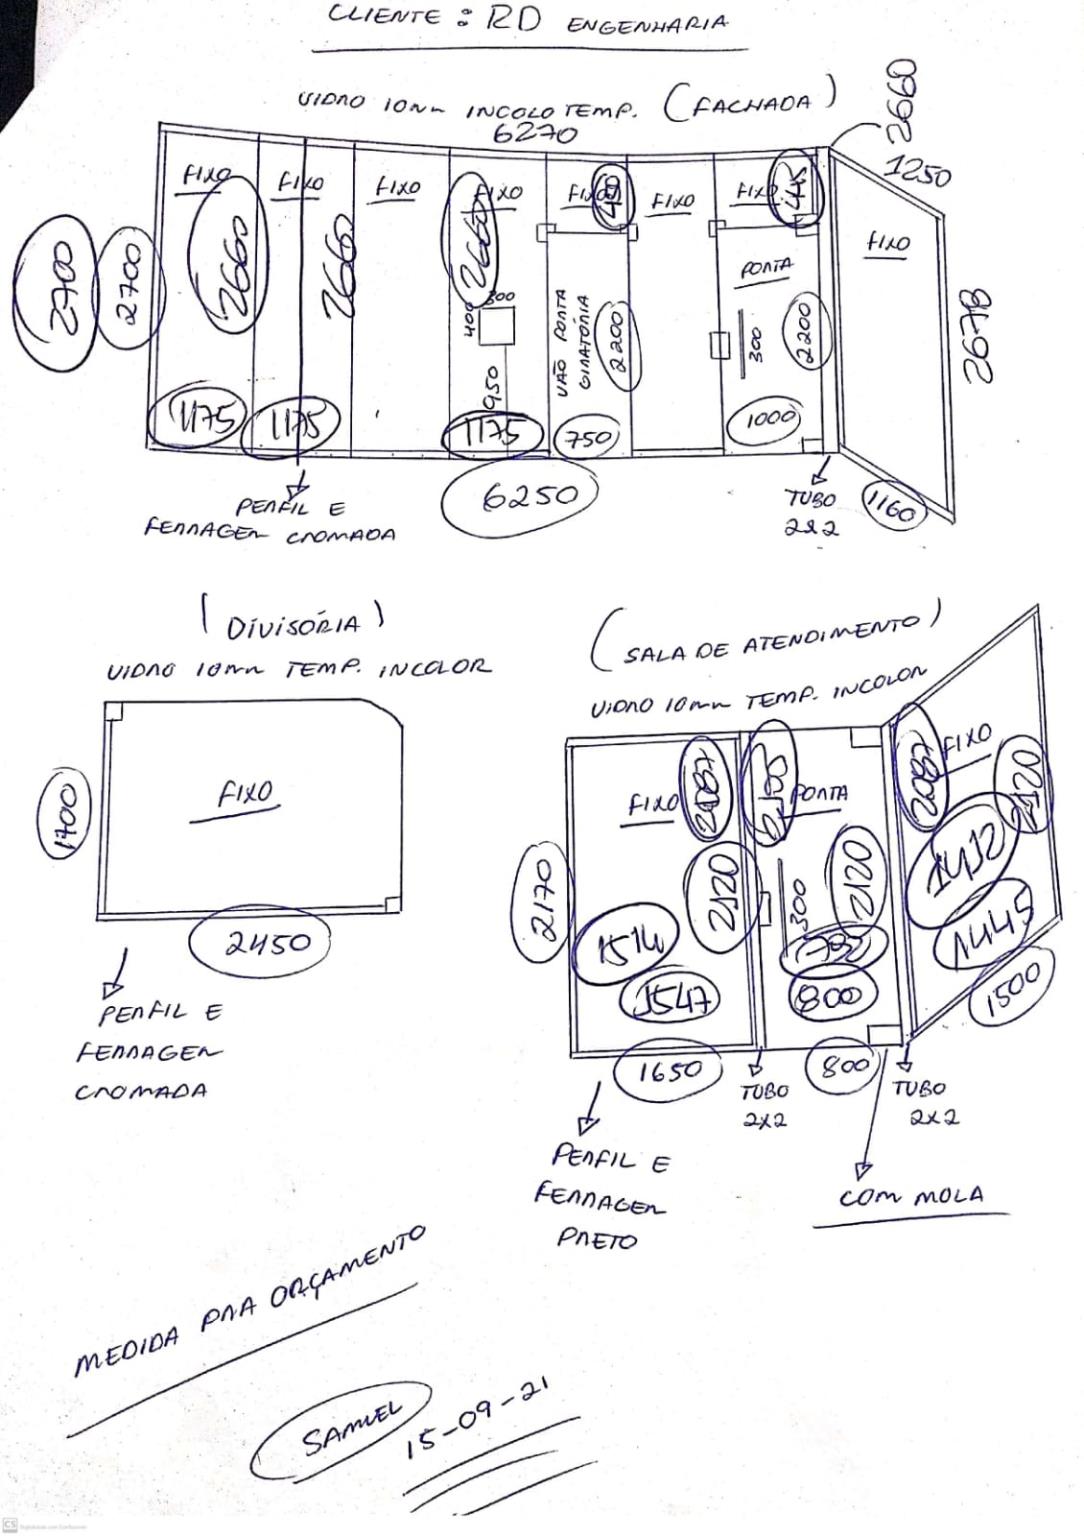 CLIENTE : RD ENGENHARIA
VIDRO 10mm INCOLO TEMP. (FACHADA)
6270
2660
1250
FIXO
FIXO
FIXO
FIXO
FIXO
FIXO
FIXO
FIXO
445
2700
2700
2660
2660
2660
300
400
950
VÃO PORTA
GIRATÓRIA
2200
PORTA
300
2200
2678
1175
1175
1175
750
1000
6250
1160
PERFIL E
FERRAGEM CROMADA
TUBO
2x2
(DIVISÓRIA)
VIDRO 10mm TEMP. INCOLOR
FIXO
1700
2450
PERFIL E
FERRAGEM
CROMADA
(SALA DE ATENDIMENTO)
VIDRO 10mm TEMP. INCOLOR
FIXO
2087
PORTA
2087
FIXO
2120
2170
2120
300
2120
1412
1445
1514
1547
795
800
1500
1650
800
TUBO
2x2
TUBO
2x2
PERFIL E
FERRAGEM
PRETO
COM MOLA
MEDIDA PRA ORÇAMENTO
SAMUEL
15-09-21
CS